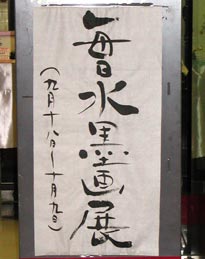 曽水墨画展
（九月十八日～十月九日）